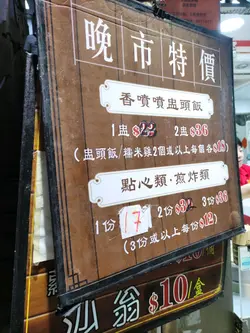 晚市特價
香噴噴盅頭飯
1盅$23 2盅$36
(盅頭飯/糯米雞2個或以上每個$18)
點心類·煎炸類
1份17 2份$32 3份$36
(3份或以上每份$12)
沙翁 $10/盒